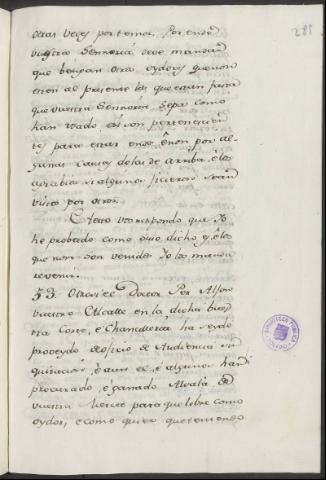 otras veces por temor. Por ende
vuestra Sennoria deve mandar
que vengan otros oydores que non
esten al presente los que estan fasta
que vuestra Sennoria sepa como
han usado, e si son pertenescien
tes para estar ende, e non por al-
gunas causas de las de arriba, e los
agrabios si algunos ficieron sean
vistos por otros.
A esto vos respondo que Yo
he probeido como suso dicho es, e los
que non son venidos Yo les mandare
venir.
53. Otrosi el Doctor Per Alfon
vuestro Alcalle en la dicha bues-
tra Corte, e Chancilleria ha seydo
proveydo de oficio de Audiencia sin
quitacion, e aun el, e algunos han
procurado, e ganado Alvalá de
vuestra Merced para que libre como
oydor, e como quier que teniendo
285
BIBLIOTECA PUBLICA